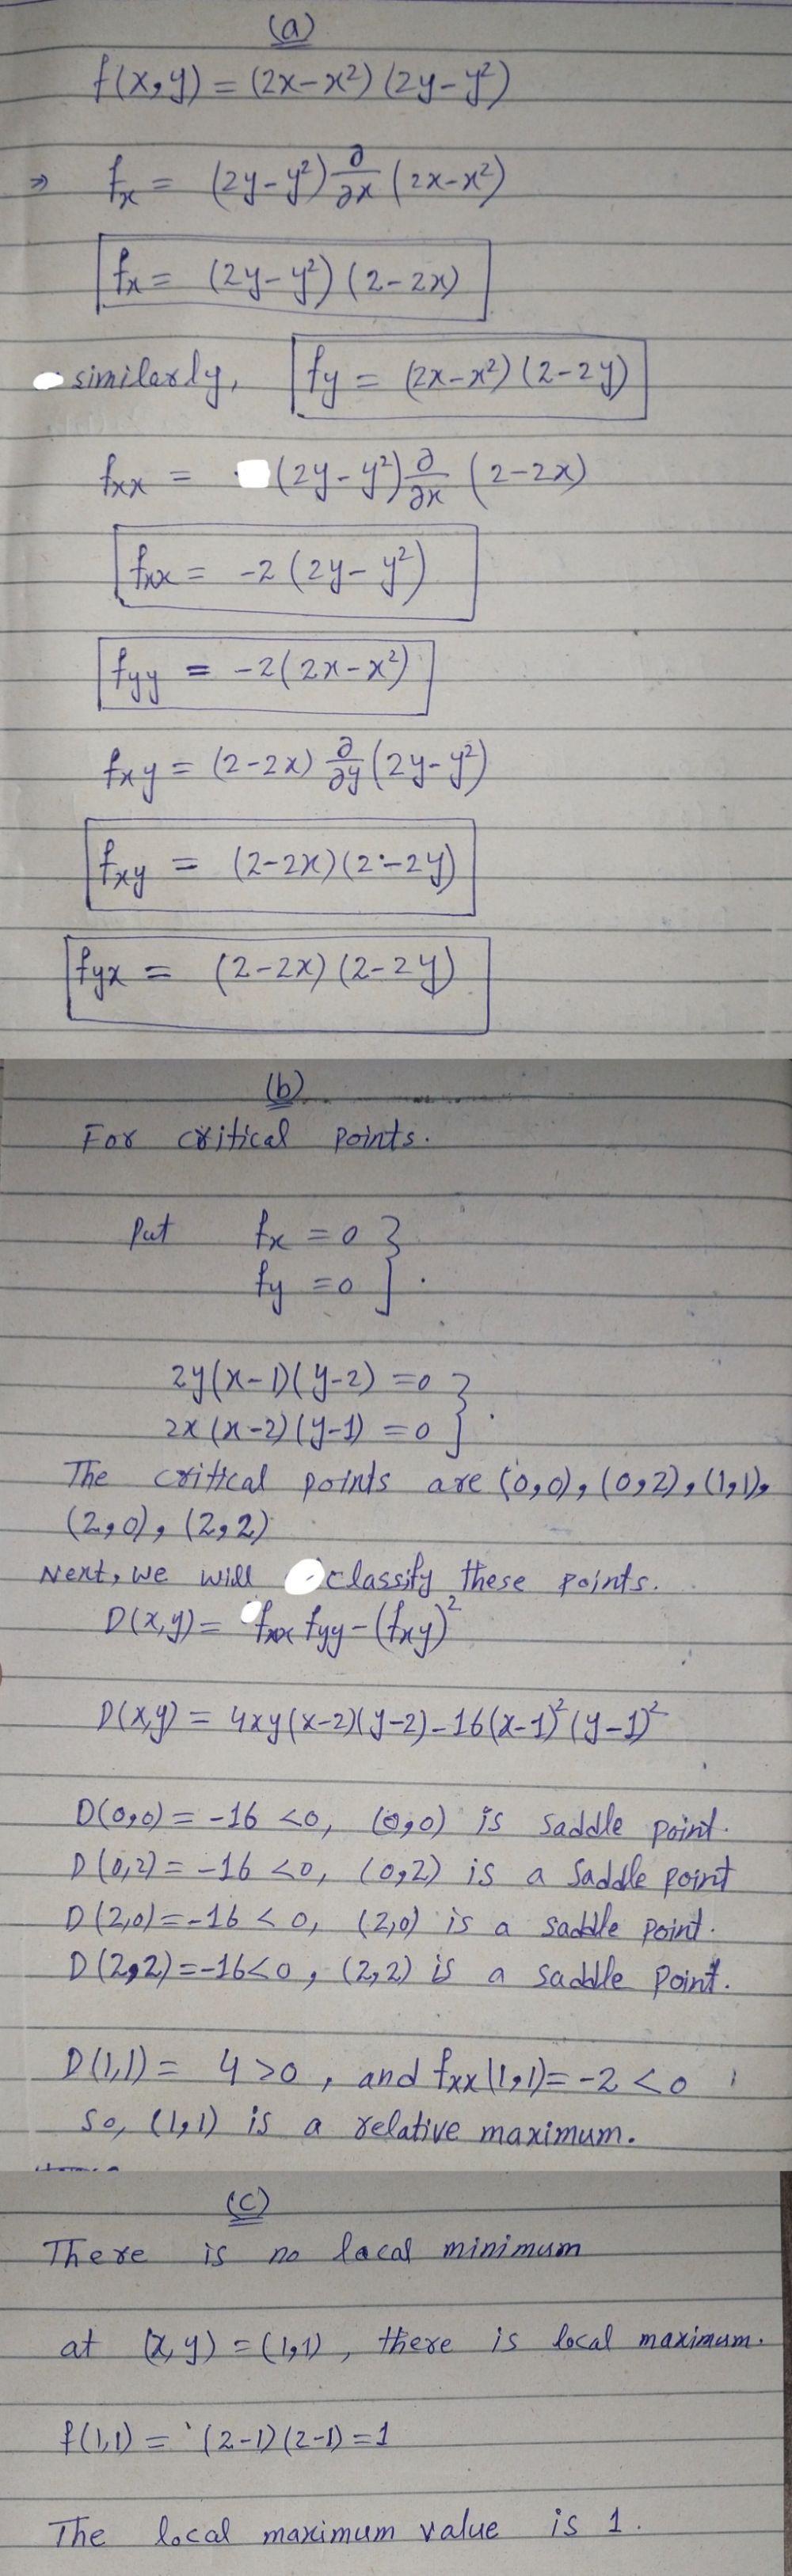 (a)
f(x,y) = (2x-x²) (2y-y²)
⇒ fx = (2y-y²) ∂/∂x (2x-x²)
fx = (2y-y²) (2-2x)
similarly, fy = (2x-x²) (2-2y)
fxx = (2y-y²) ∂/∂x (2-2x)
fxx = -2 (2y-y²)
fyy = -2(2x-x²)
fxy = (2-2x) ∂/∂y (2y-y²)
fxy = (2-2x)(2-2y)
fyx = (2-2x) (2-2y)
(b)
For critical points.
Put fx = 0 }
fy = 0 } .
2y(x-1)(y-2) = 0 }
2x(x-2)(y-1) = 0 } .
The critical points are (0,0), (0,2), (1,1),
(2,0), (2,2)
Next, we will classify these points.
D(x,y) = fxx fyy - (fxy)²
D(x,y) = 4xy(x-2)(y-2) - 16(x-1)²(y-1)²
D(0,0) = -16 <0, (0,0) is saddle point.
D(0,2) = -16 <0, (0,2) is a saddle point
D(2,0) = -16 < 0, (2,0) is a saddle point.
D(2,2) = -16<0, (2,2) is a saddle point.
D(1,1) = 4 >0, and fxx(1,1) = -2 < 0
So, (1,1) is a relative maximum.
(c)
There is no local minimum
at (x,y) = (1,1), there is local maximum.
f(1,1) = (2-1)(2-1) = 1
The local maximum value is 1.